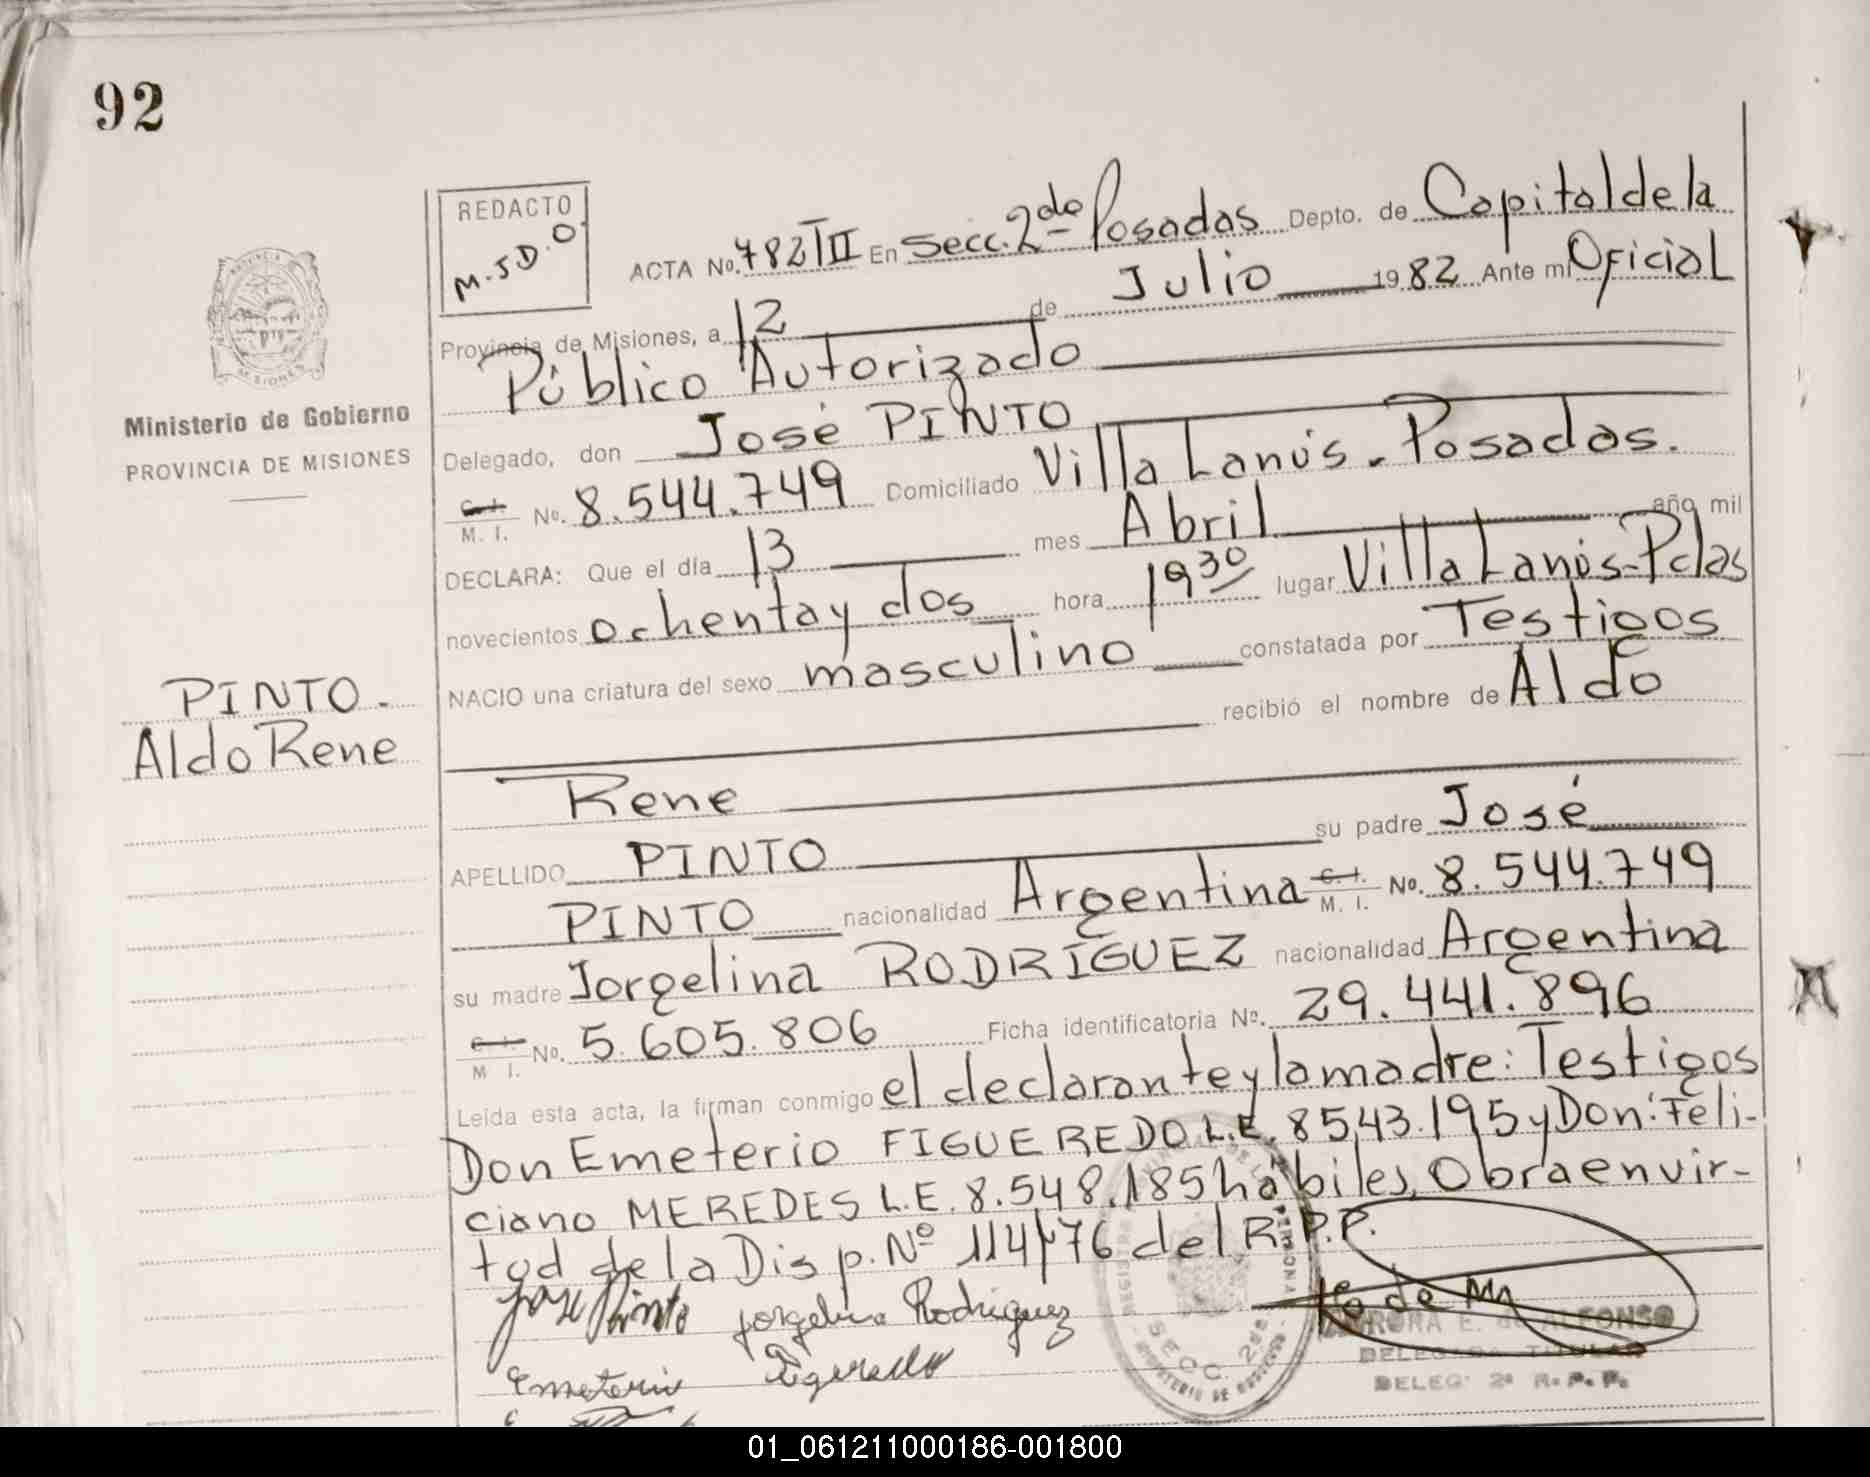 92
REDACTO
M.S.D.O.
ACTA No. 782/TII En Secc. 2da Posadas Depto. de Capital de la
Provincia de Misiones, a 12 de Julio 1982 Ante mí Oficial
Público Autorizado
Ministerio de Gobierno
PROVINCIA DE MISIONES
Delegado, don José PINTO
C. I. M. I. No. 8.544.749 Domiciliado Villa Lanús - Posadas.
DECLARA: Que el día 13 mes Abril año mil
novecientos ochenta y dos hora 19 30 lugar Villa Lanús - Pdas
NACIO una criatura del sexo masculino constatada por Testigos
recibió el nombre de Aldo
PINTO.
Aldo Rene
Rene
APELLIDO PINTO su padre José
PINTO nacionalidad Argentina C. I. M. I. No. 8.544.749
su madre Jorgelina RODRÍGUEZ nacionalidad Argentina
C. I. M I. No. 5.605.806 Ficha identificatoria No. 29.441.896
Leída esta acta, la firman conmigo el declarante y la madre: Testigos
Don Emeterio FIGUEREDO L.E. 8543.195 y Don: Feli-
ciano MEREDES L.E. 8.548.185 hábiles, Obra en vir-
tud de la Disp. Nº 114/76 del R.P.P.
José Pinto Jorgelina Rodriguez
Emeterio Figeredo
SECC. 2da
AURORA E. de ALFONSO
DELEGADA TITULAR
DELEG. 2ª R. P. P.
01_061211000186-001800